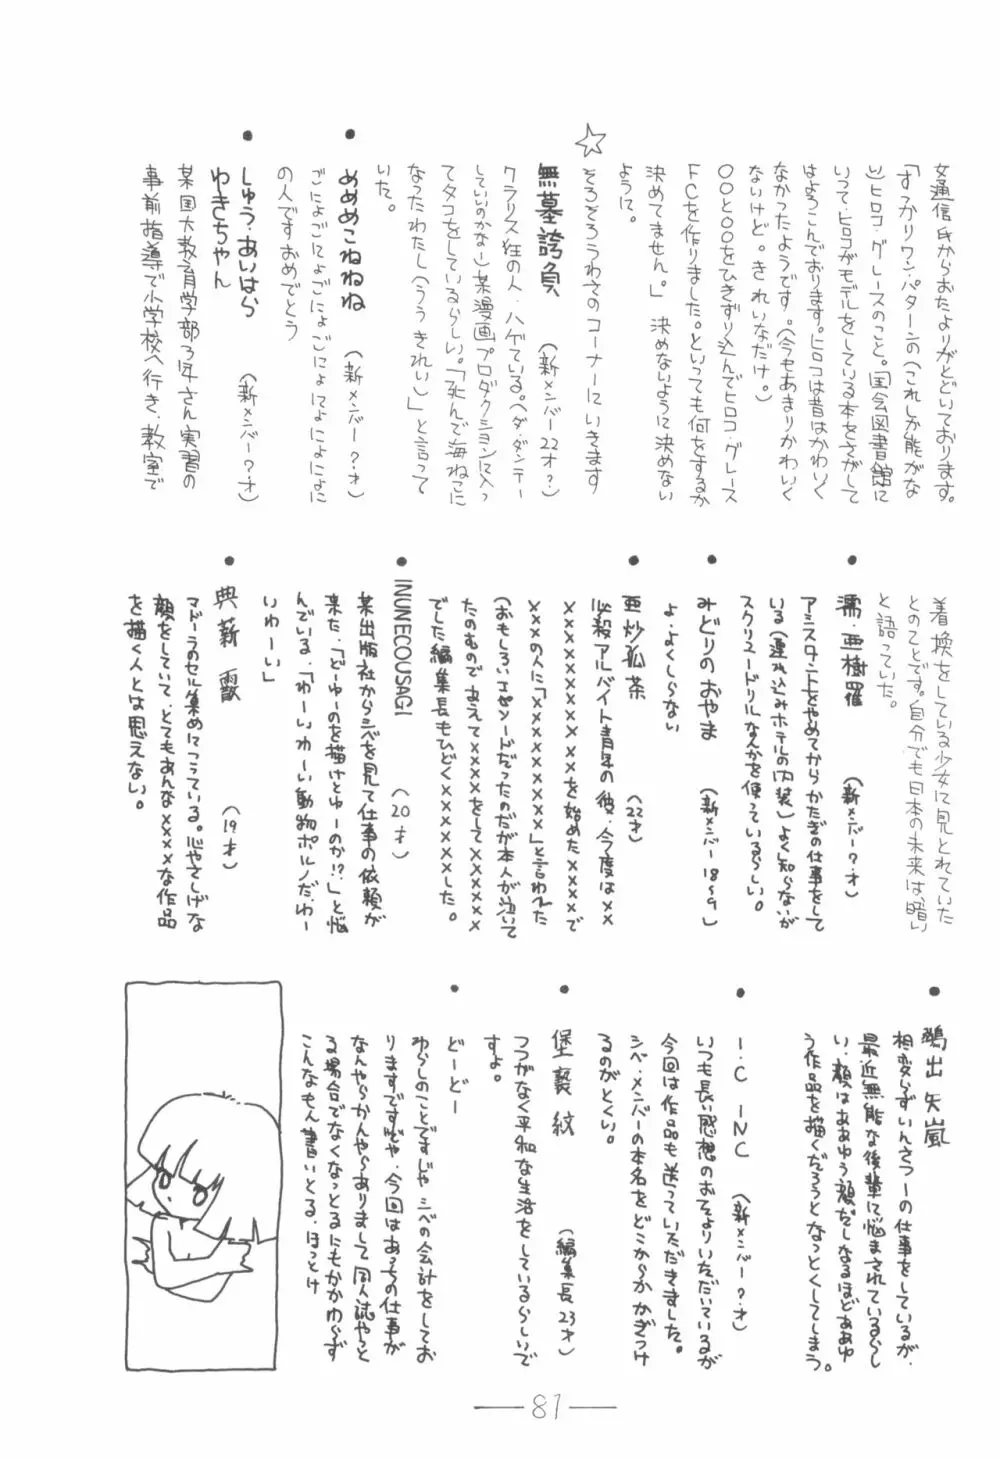 女通信氏からおたよりがとどいております。
「すっかりワン・パターンの(これしか能がな
い)ヒロコ・グレースのこと。「国会図書館に
いって、ヒロコがモデルをしている本をさがして
はよろこんでおります。ヒロコは昔はかわいく
なかったようです。(今もあまりかわいく
ないけど。きれいなだけ。)
○○○と○○をひきずり込んでヒロコ・グレース
FCを作りました。といっても何をするか
決めてません。」決めないように決めない
ように。
☆そろそろうわさのコーナーにいきます
無墓誇負(新メンバー22才?)
クラリス狂の人、ハゲている。(ダ・ダンテー
していいのかな)某漫画プロダクションに入っ
てタコをしているらしい。「死んで海ねこに
なったわたし(ううきれい)」と言って
いた。
●めめめこねねね(新メンバー?才)
ごにょごにょごにょごにょにょにょによに
の人ですおめでとう
●しゅう・あいはら(新メンバー?才)
ゆきちゃん
某国大教育学部3年さん実習の
事前指導で小学校へ行き、教室で
着換をしている少女に見とれていた
とのことです。自分でも日本の未来は暗い
と語っていた。
●濡・亜樹羅(新メンバー?才)
アシスタントをやめてからかたぎの仕事をして
いる(連れ込みホテルの内装)よく知らないが
スクリュードリルなんかを使っているらしい。
●みどりのおやま(新メンバー18~9)
よ、よくしらない
●亜炒孤茶(22才)
必殺アルバイト青年の彼、今度は××
××××××××を始めた××××で
×××の人に「××××××××」と言われた
(おもしろいエピソードだったのだが本人が泣いて
たのむのであえて××××をして×××××
でした編集長もひどく×××××××した。
●INUNECOUSAGI(20才)
某出版社からシベを見て仕事の依頼が
来た、「どーゆーのを描けとゆーのか!?」と悩
んでいる、「わーいわーい動物ポルノだ、わー
いわーい」
●典薪霰(19才)
マドーラのセル集めにこっている。心やさしげな
顔をしていて、とてもあんな××××な作品
を描く人とは思えない。
●鵺出矢嵐
相変いずいんさつーの仕事をしているが、
最近無能な後輩に悩まされているらし
い、顔はああゆう顔だしなるほどああゆ
う作品を描くだろうとなっとくしてしまう。
●I・C INC(新メンバー?才)
いつも長い感想のおたよりいただいているが
今回は作品も送っていただきました。
シベ・メンバーの本名をどこからかかぎつけ
るのがとくい。
●堡褻紋(編集長23才)
つつがなく平和な生活をしているらしいで
すよ。
●どーどー
わらしのことですじゃシベの会計をしてお
りますですじゃ、今回はあっちの仕事が
なんやらかんやらありまして同人誌やっと
る場合でなくなっとるにもかかわらず
こんなもん書いとる、ほっとけ
—81—